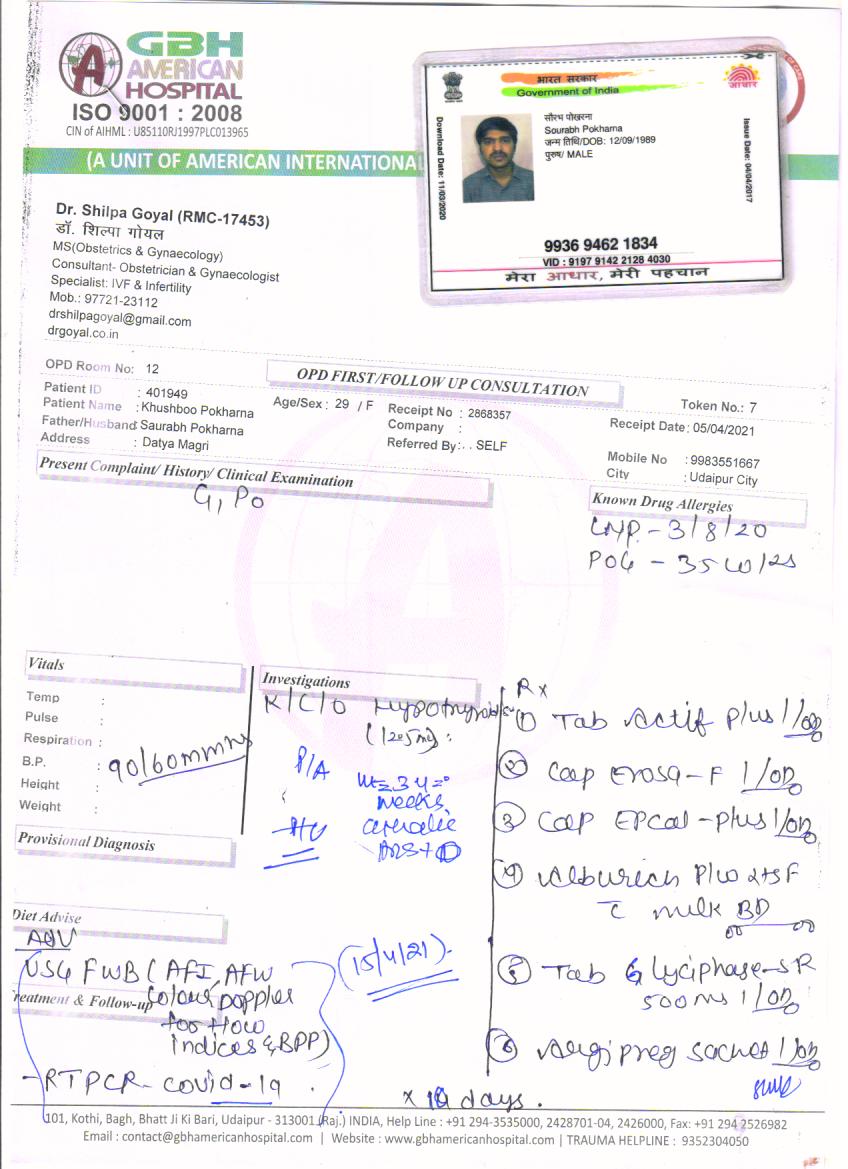 GBH
AMERICAN
HOSPITAL
ISO 9001 : 2008
CIN of AIHML : U85110RJ1997PLC013965
(A UNIT OF AMERICAN INTERNATIONAL
भारत सरकार
Government of India
आधार
Download Date: 11/03/2020
सौरभ पोखरना
Sourabh Pokharna
जन्म तिथि/DOB: 12/09/1989
पुरुष/ MALE
Issue Date: 04/04/2017
9936 9462 1834
VID : 9197 9142 2128 4030
मेरा आधार, मेरी पहचान
Dr. Shilpa Goyal (RMC-17453)
डॉ. शिल्पा गोयल
MS(Obstetrics & Gynaecology)
Consultant- Obstetrician & Gynaecologist
Specialist: IVF & Infertility
Mob.: 97721-23112
drshilpagoyal@gmail.com
drgoyal.co.in
OPD Room No: 12
OPD FIRST/FOLLOW UP CONSULTATION
Token No.: 7
Patient ID : 401949
Patient Name : Khushboo Pokharna
Father/Husband : Saurabh Pokharna
Address : Datya Magri
Age/Sex : 29 / F
Receipt No : 2868357
Company :
Referred By: . . SELF
Receipt Date: 05/04/2021
Mobile No : 9983551667
City : Udaipur City
Present Complaint/ History/ Clinical Examination
G1 P0
Known Drug Allergies
LMP - 3/8/20
POG - 35
Vitals
Temp :
Pulse :
Respiration :
B.P. : 90/60mmHg
Height :
Weight :
Provisional Diagnosis
Investigations
K/C/O Hypothyroid
P/A
weeks
Rx
① Tab Actif Plus 1/OD
② Cap Evosa-F 1/OD
③ Cap EPcal-Plus 1/OD
④ Alburich
c milk BD
⑤ Tab Glyciphase-SR
500mg 1/OD
⑥ Argipreg sachet 1/OD
x 10 days.
Diet Advise
ADV
USG FWB (AFI, AFW
Treatment & Follow-up
Colour Doppler
for flow
indices & BPP)
(15/4/21).
- RTPCR - Covid-19.
101, Kothi, Bagh, Bhatt Ji Ki Bari, Udaipur - 313001 (Raj.) INDIA, Help Line : +91 294-3535000, 2428701-04, 2426000, Fax: +91 294 2526982
Email : contact@gbhamericanhospital.com | Website : www.gbhamericanhospital.com | TRAUMA HELPLINE : 9352304050